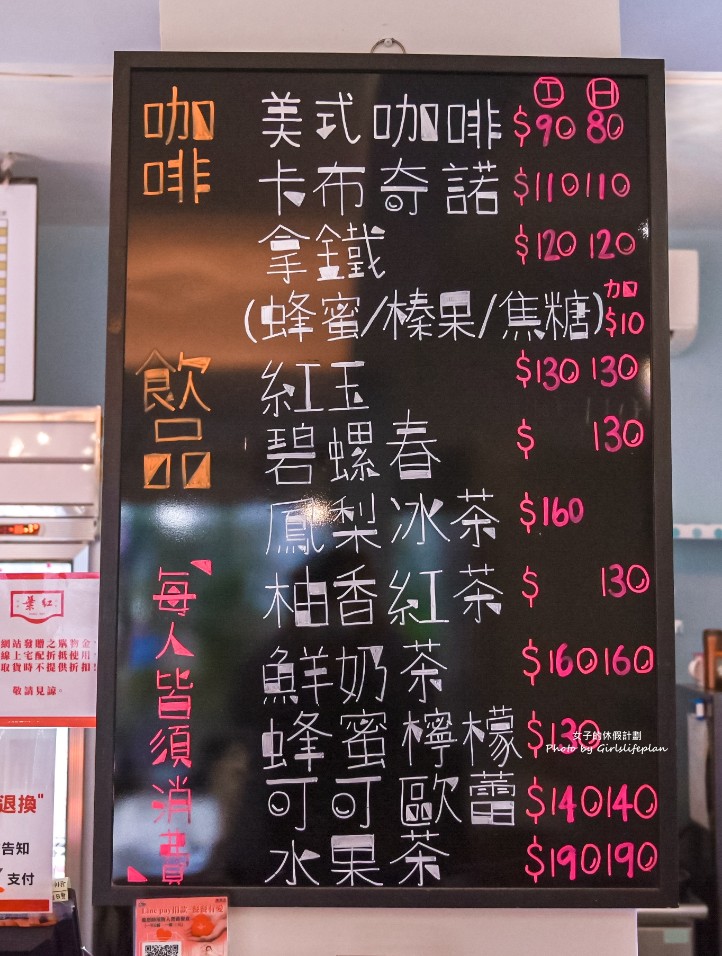 咖啡
工 日
美式咖啡 $90 80
卡布奇諾 $110 110
拿鐵 $120 120
(蜂蜜/榛果/焦糖) 加$10
飲品
紅玉 $130 130
碧螺春 $ 130
鳳梨冰茶 $160
柚香紅茶 $ 130
鮮奶茶 $160 160
蜂蜜檸檬 $130
可可歐蕾 $140 140
水果茶 $190 190
每人皆須消費
女子的休假計劃
Photo by Girlslifeplan
葉紅
網站發贈之購物金,
線上宅配折抵使用,
取貨時不提供折扣!
敬請見諒。
退換"
告知
支付